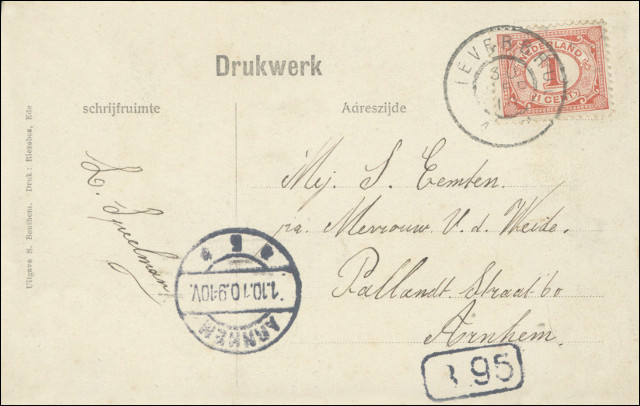 Drukwerk
schrijfruimte
Adreszijde
NEDERLAND
1
1 CENT
Mej. S. Eemten.
p/a Mevrouw V. d. Weide.
Pallandt Straat 60
Arnhem.
L. Speelman
Uitgave S. Benthem. Druk: Riersbos, Ede
* 5 *
1.10.10.9-10V.
ARNHEM
95